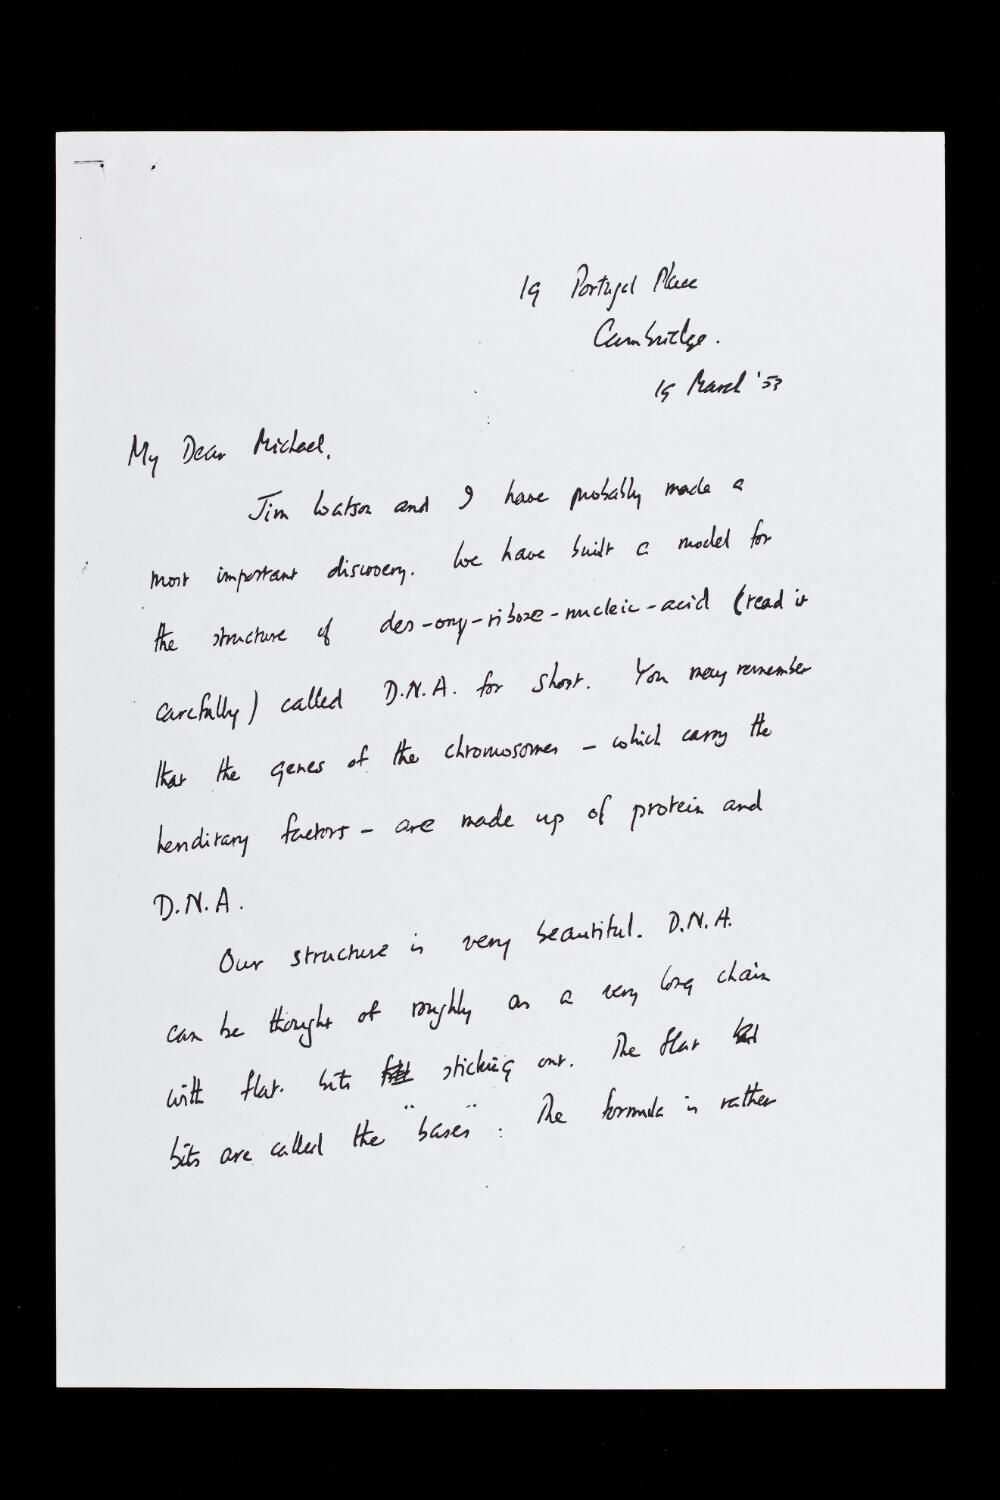 19 Portugal Place
Cambridge.
19 March '53
My Dear Michael,
Jim Watson and I have probably made a
most important discovery. We have built a model for
the structure of des-oxy-ribose-nucleic-acid (read it
carefully) called D.N.A. for short. You may remember
that the genes of the chromosomes - which carry the
hereditary factors - are made up of protein and
D.N.A.
Our structure is very beautiful. D.N.A.
can be thought of roughly as a very long chain
with flat bits sticking out. The flat
bits are called the "bases". The formula is rather